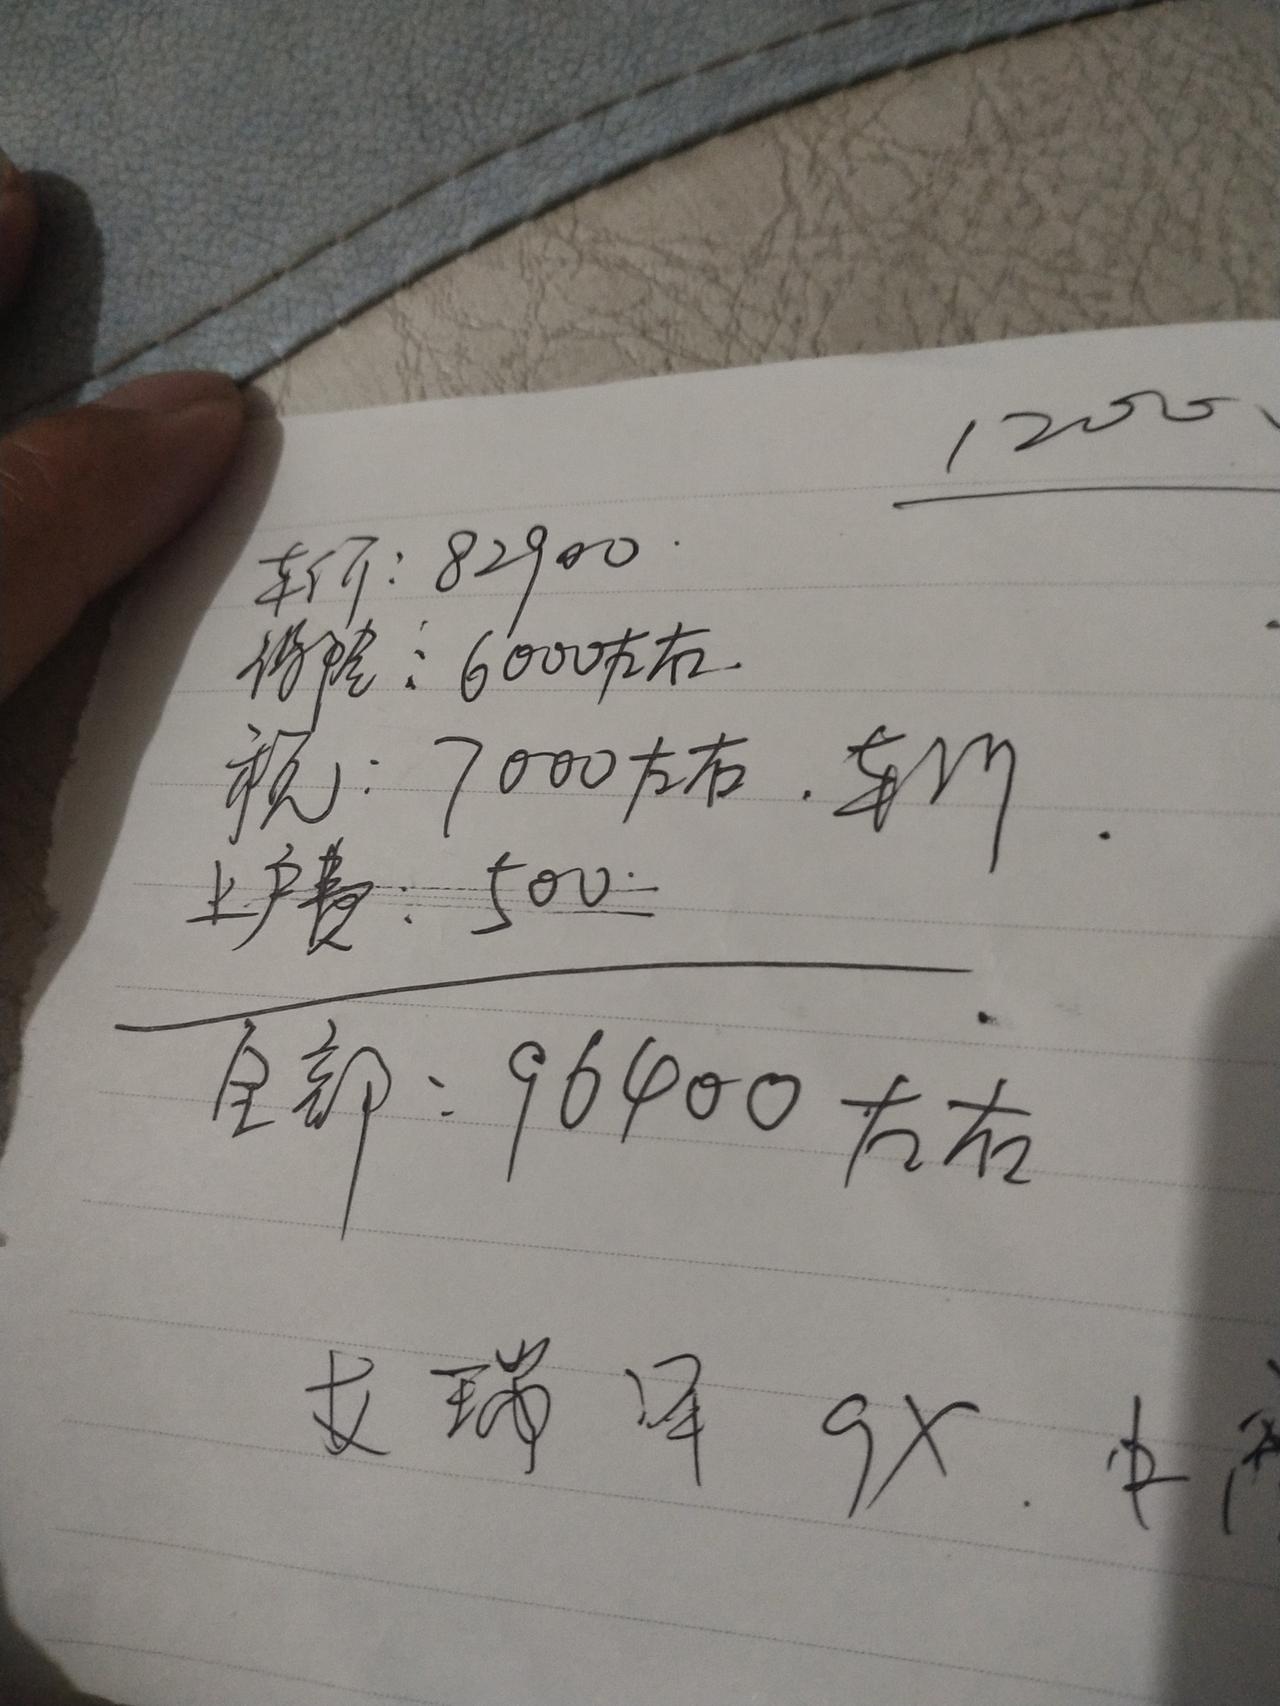 1200
车价：82900.
保险：6000左右.
税：7000左右.
上户费：500
全部：96400左右
艾瑞泽 9X.